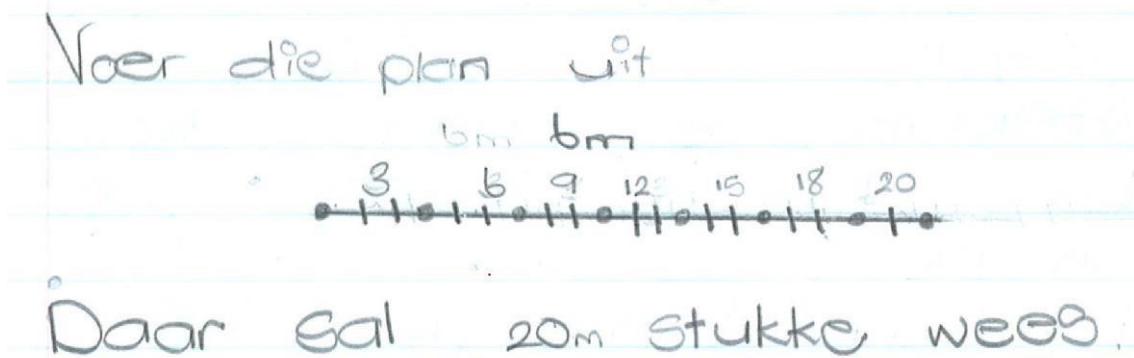 Voer die plan uit
6m 6m
3 6 9 12 15 18 20
Daar sal 20m stukke wees.